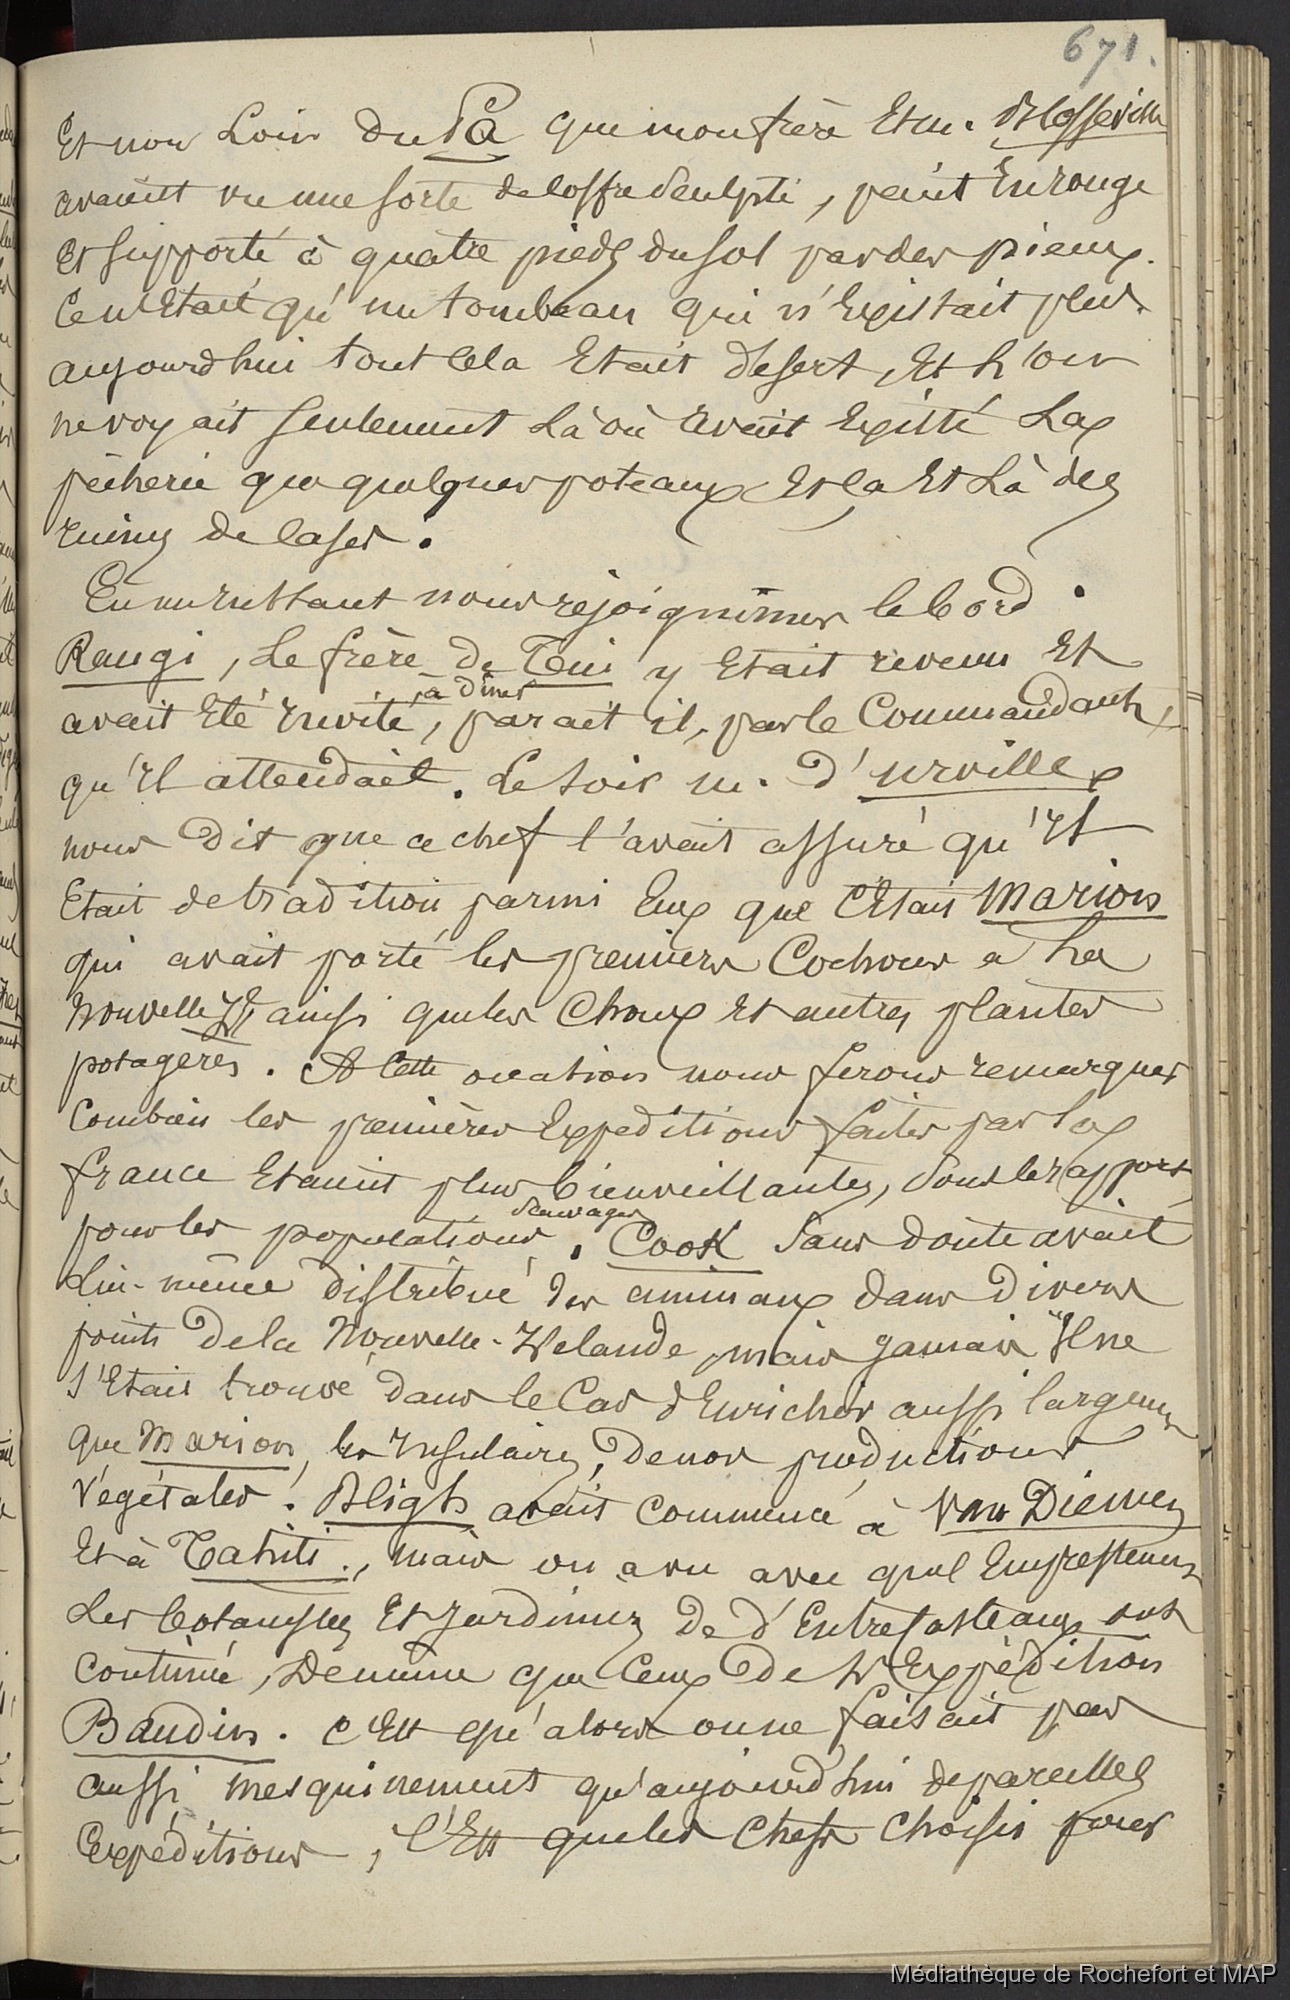 671.
Et non Loin du Pâ que mon frère Et m. Blosseville
avaient vu une sorte de coffre sculpté, peint En rouge
Et supporté à quatre pieds du sol par des pieux.
Ce n'Etait qu'un tombeau qui n'Existait plus.
aujourd'hui tout cela Etait désert, Et L'on
ne voyait seulement Là où avait Existé La
pêcherie que quelques poteaux Et ça Et Là des
ruines de cases.
En nous rejoignimes le bord.
Rangi, Le frère de Toui y Etait revenu Et
avait Eté invité, à diner parait il, par le Commandant,
qu'il attendait. Le soir m. d'urville
nous dit que ce chef l'avait assuré qu'il
Etait de tradition parmi Eux que C'Etait Marion
qui avait porté les premiers Cochons a La
Nouvelle Zde ainsi que les Choux Et autres plantes
potagères. A Cette occation nous ferons remarquer
Combien les premières Expeditions faites par La
france Etaient plus bienveillantes, sous les rapports
pour les populations sauvages. Cook sans doute avait
Lui-même distribué des animaux dans divers
points de la Nouvelle-Zelande, mais jamais Il ne
s'Etait trouvé dans le Cas d'Enrichir aussi largement
que Marion, les Insulaires, de nos productions
végétales. Bligh avait commencé à Van Diemen
Et à Tahiti., mais on a vu avec quel Empressement
Les botanistes Et jardiniers De d'Entrecasteaux ont
continué, De même que Ceux De L'Expédition
Baudin. C'Est qu'alors on ne faisait pas
aussi mesquinement qu'aujourd'hui de pareilles
Expéditions, C'Est que les Chefs Choisis pour
Médiathèque de Rochefort et MAP